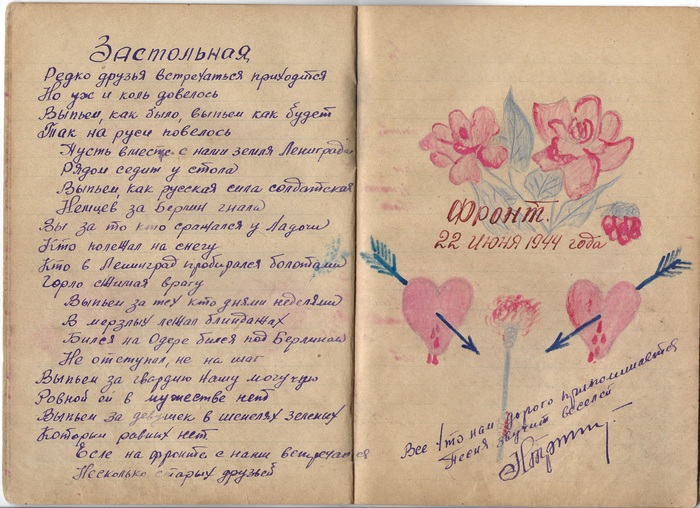 Застольная
Редко друзья встречаться приходится
Но уж и коль довелось
Выпьем, как было, выпьем как будет
Так на руси повелось
Пусть вместе с нами земля Ленинграда
Рядом седит у стола
Выпьем как русская сила солдатская
Немцев за Берлин гнала
Вы за то кто сражался у Ладоги
Кто полежал на снегу
Кто в Ленинград пробирался болотами
Горло сжимая врагу
Выпьем за тех кто днями неделями
В мерзлых лежал блиндажах
Бился на Одере бился под Берлином
Не отступал, не на шаг
Выпьем за гвардию нашу могучую
Ровной ей в мужестве нет
Выпьем за девушек в шенелях зеленых
Которы равных нет.
Есле на фронте с нами встречается
Несколько старых друзей
Фронт.
22 июня 1944 года
Все что нам дорого припоминается
Песня звучит веселей